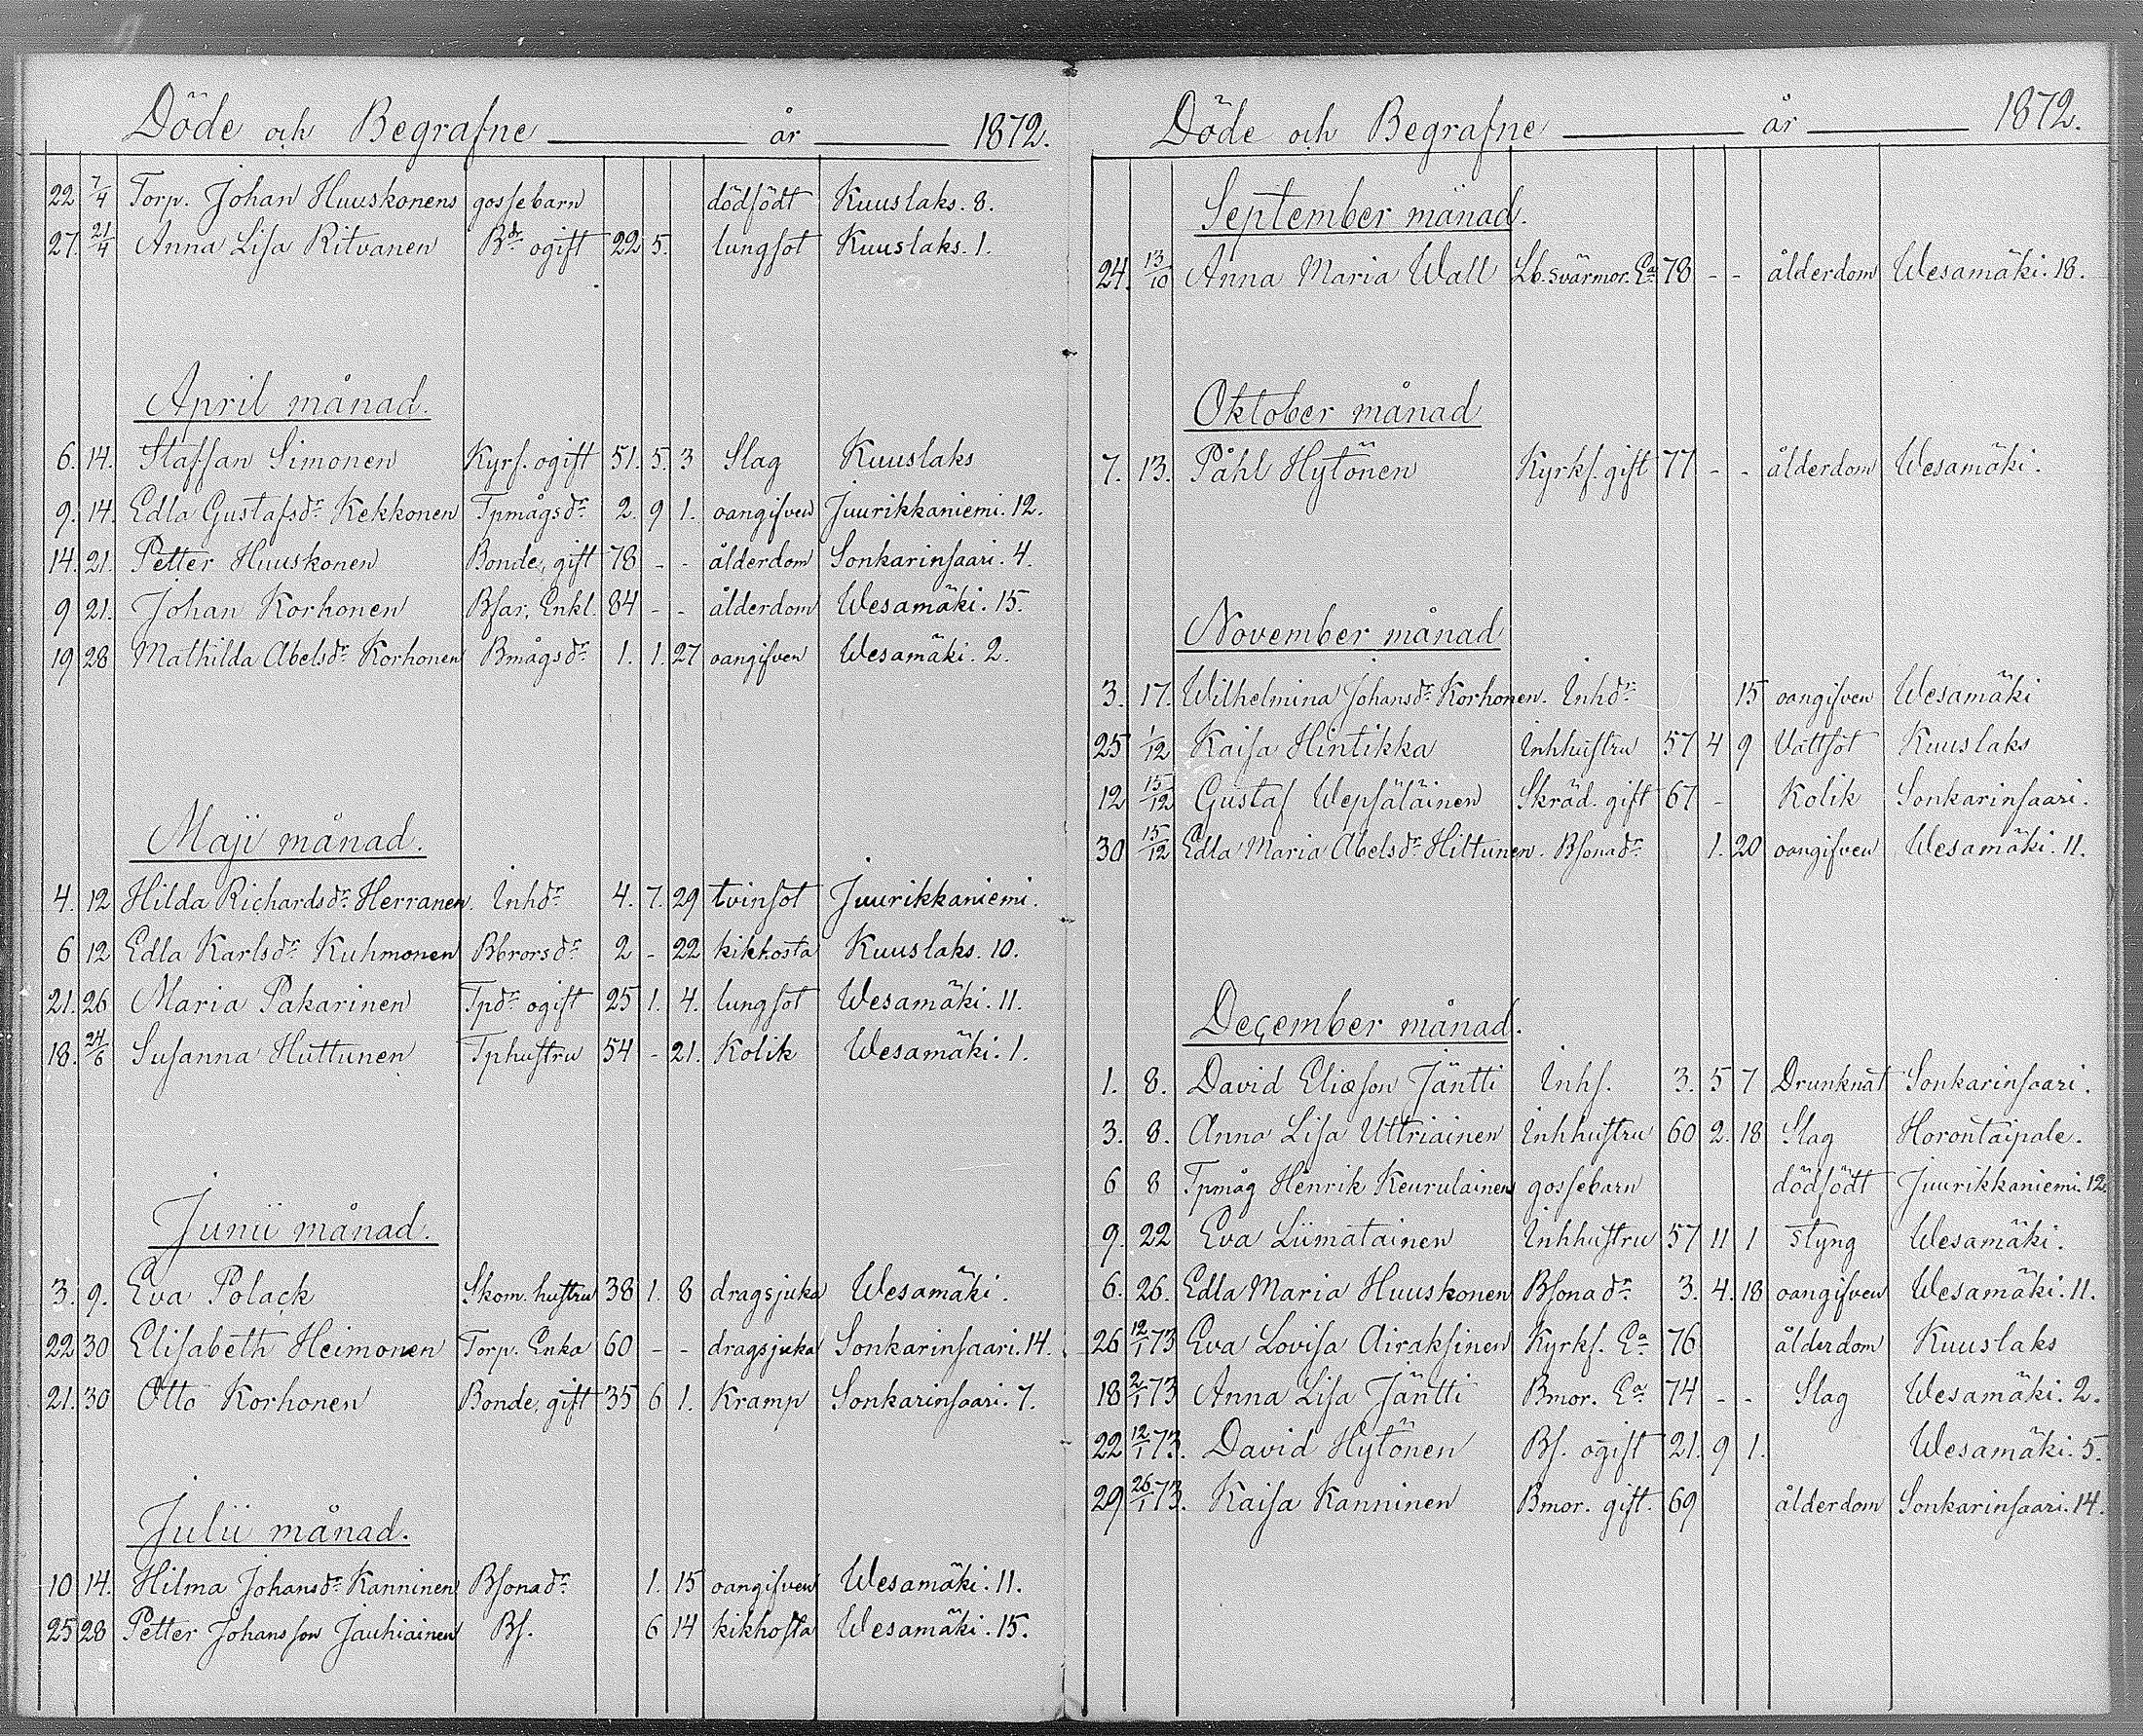 Döde och Begrafne år 1872.
22 7/4 Torp. Johan Huuskonens gossebarn dödfödt Kuuslaks. 8.
27. 21/4 Anna Lisa Ritvanen Bdr ogift 22 5. lungsot Kuuslaks. 1.
April månad.
6. 14. Staffan Simonen Kyrs. ogift 51. 5. 3 Slag Kuuslaks
9. 14. Edla Gustafsdr Kekkonen Tpmågsdr 2. 9 1. oangifven Juurikkaniemi. 12.
14. 21. Petter Huuskonen Bonde, gift 78 - - ålderdom Sonkarinsaari. 4.
9 21. Johan Korhonen Bfar, Enkl. 84 - - ålderdom Wesamäki. 15.
19 28 Mathilda Abelsdr Korhonen Bmågsdr 1. 1. 27 oangifven Wesamäki. 2.
Maji månad.
4. 12 Hilda Richardsdr Herranen. Inhdr 4. 7. 29 tvinsot Juurikkaniemi.
6 12 Edla Karlsdr Kuhmonen Bbrorsdr 2 - 22 kikhosta Kuuslaks. 10.
21. 26 Maria Pakarinen Tpdr ogift 25 1. 4. lungsot Wesamäki. 11.
18. 24/6 Susanna Huttunen Tphustru 54 - 21. Kolik Wesamäki. 1.
Junii månad.
3. 9. Eva Polack Skom. hustru 38 1. 8 dragsjuka Wesamäki.
22 30 Elisabeth Heimonen Torp. Enka 60 - - dragsjuka Sonkarinsaari. 14.
21. 30 Otto Korhonen Bonde, gift 35 6 1. Kramp Sonkarinsaari. 7.
Julii månad.
10 14. Hilma Johansdr Kanninen Bsonadr 1. 15 oangifven Wesamäki. 11.
25 28 Petter Johansson Jauhiainen Bs. 6 14 kikhosta Wesamäki. 15.
Döde och Begrafne år 1872.
September månad.
24. 13/10 Anna Maria Wall Lb. svärmor. Ea 78 - - ålderdom Wesamäki. 18.
Oktober månad
7. 13. Påhl Hytönen Kyrks. gift 77 - - ålderdom Wesamäki.
November månad
3. 17. Wilhelmina Johansdr Korhonen. Inhdr 15 oangifven Wesamäki
25 1/12 Kaisa Hintikka Inhhustru 57 4 9 Vattsot Kuuslaks
12 15/12 Gustaf Wepsäläinen Skräd. gift 67 - Kolik Sonkarinsaari.
30 15/12 Edla Maria Abelsdr Hiltunen. Bsonadr 1. 20 oangifven Wesamäki. 11.
December månad.
1. 8. David Eliæson Jäntti Inhs. 3. 5 7 Drunknat Sonkarinsaari.
3. 8. Anna Lisa Uttriainen Inhhustru 60 2. 18 Slag Horontaipale.
6 8 Tpmåg Henrik Keurulainens gossebarn dödfödt Juurikkaniemi. 12.
9. 22 Eva Liimatainen Inhhustru 57 11 1 styng Wesamäki.
6. 26. Edla Maria Huuskonen Bsonadr 3. 4. 18 oangifven Wesamäki. 11.
26 12/1 73 Eva Lovisa Airaksinen Kyrks. Ea 76 ålderdom Kuuslaks
18 2/1 73 Anna Lisa Jäntti Bmor. Ea 74 - - Slag Wesamäki. 2.
22 12/1 73. David Hytönen Bs. ogift 21. 9 1. Wesamäki. 5.
29 26/1 73. Kaisa Kanninen Bmor. gift. 69 ålderdom Sonkarinsaari. 14.